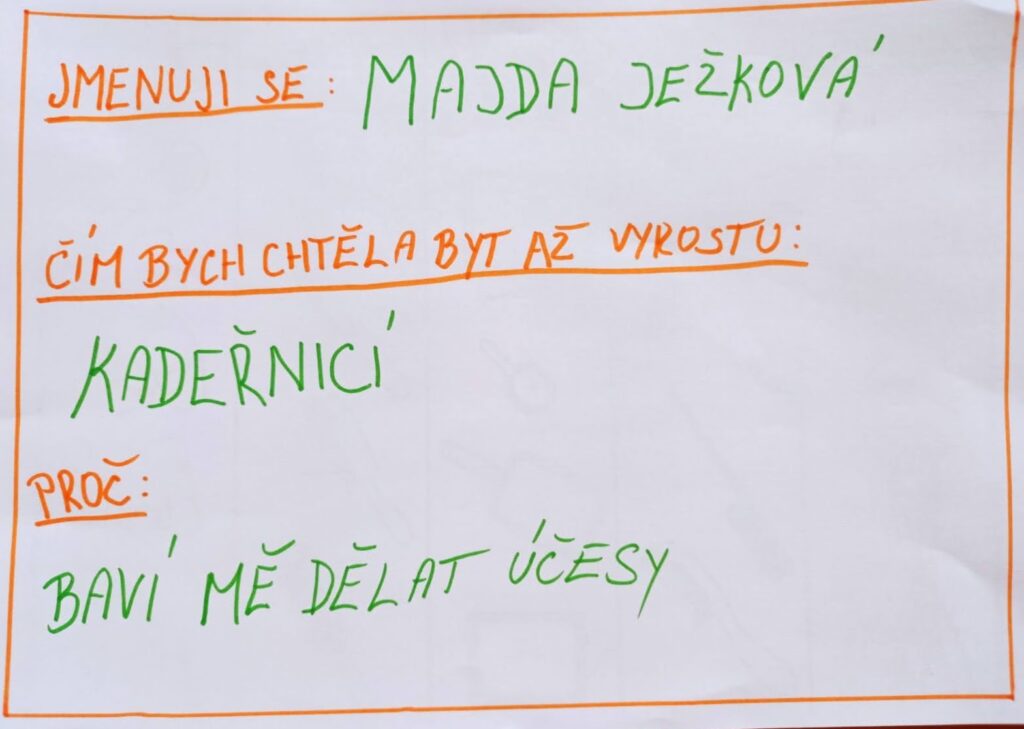 JMENUJI SE: MAJDA JEŽKOVÁ
ČÍM BYCH CHTĚLA BYT AŽ VYROSTU:
KADEŘNICÍ
PROČ:
BAVÍ MĚ DĚLAT ÚČESY